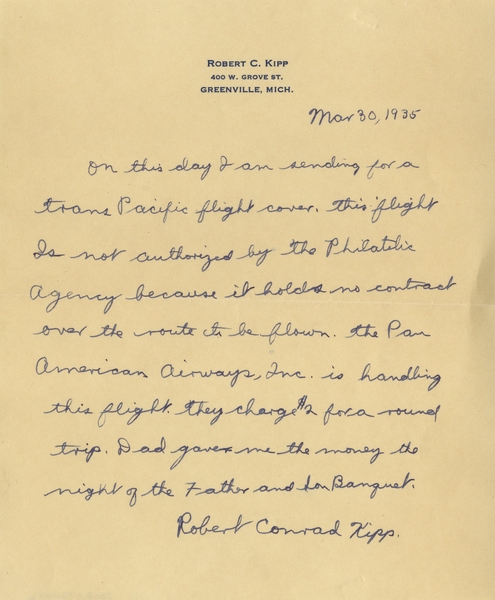 Robert C. Kipp
400 W. Grove St.
Greenville, Mich.
Mar 30, 1935
On this day I am sending for a
trans Pacific flight cover. this flight
Is not authorized by the Philatelic
Agency because it holds no contract
over the route to be flown. the Pan
American Airways, Inc. is handling
this flight. they charge $2 for a round
trip. Dad gave me the money the
night of the Father and Son Banquet.
Robert Conrad Kipp.